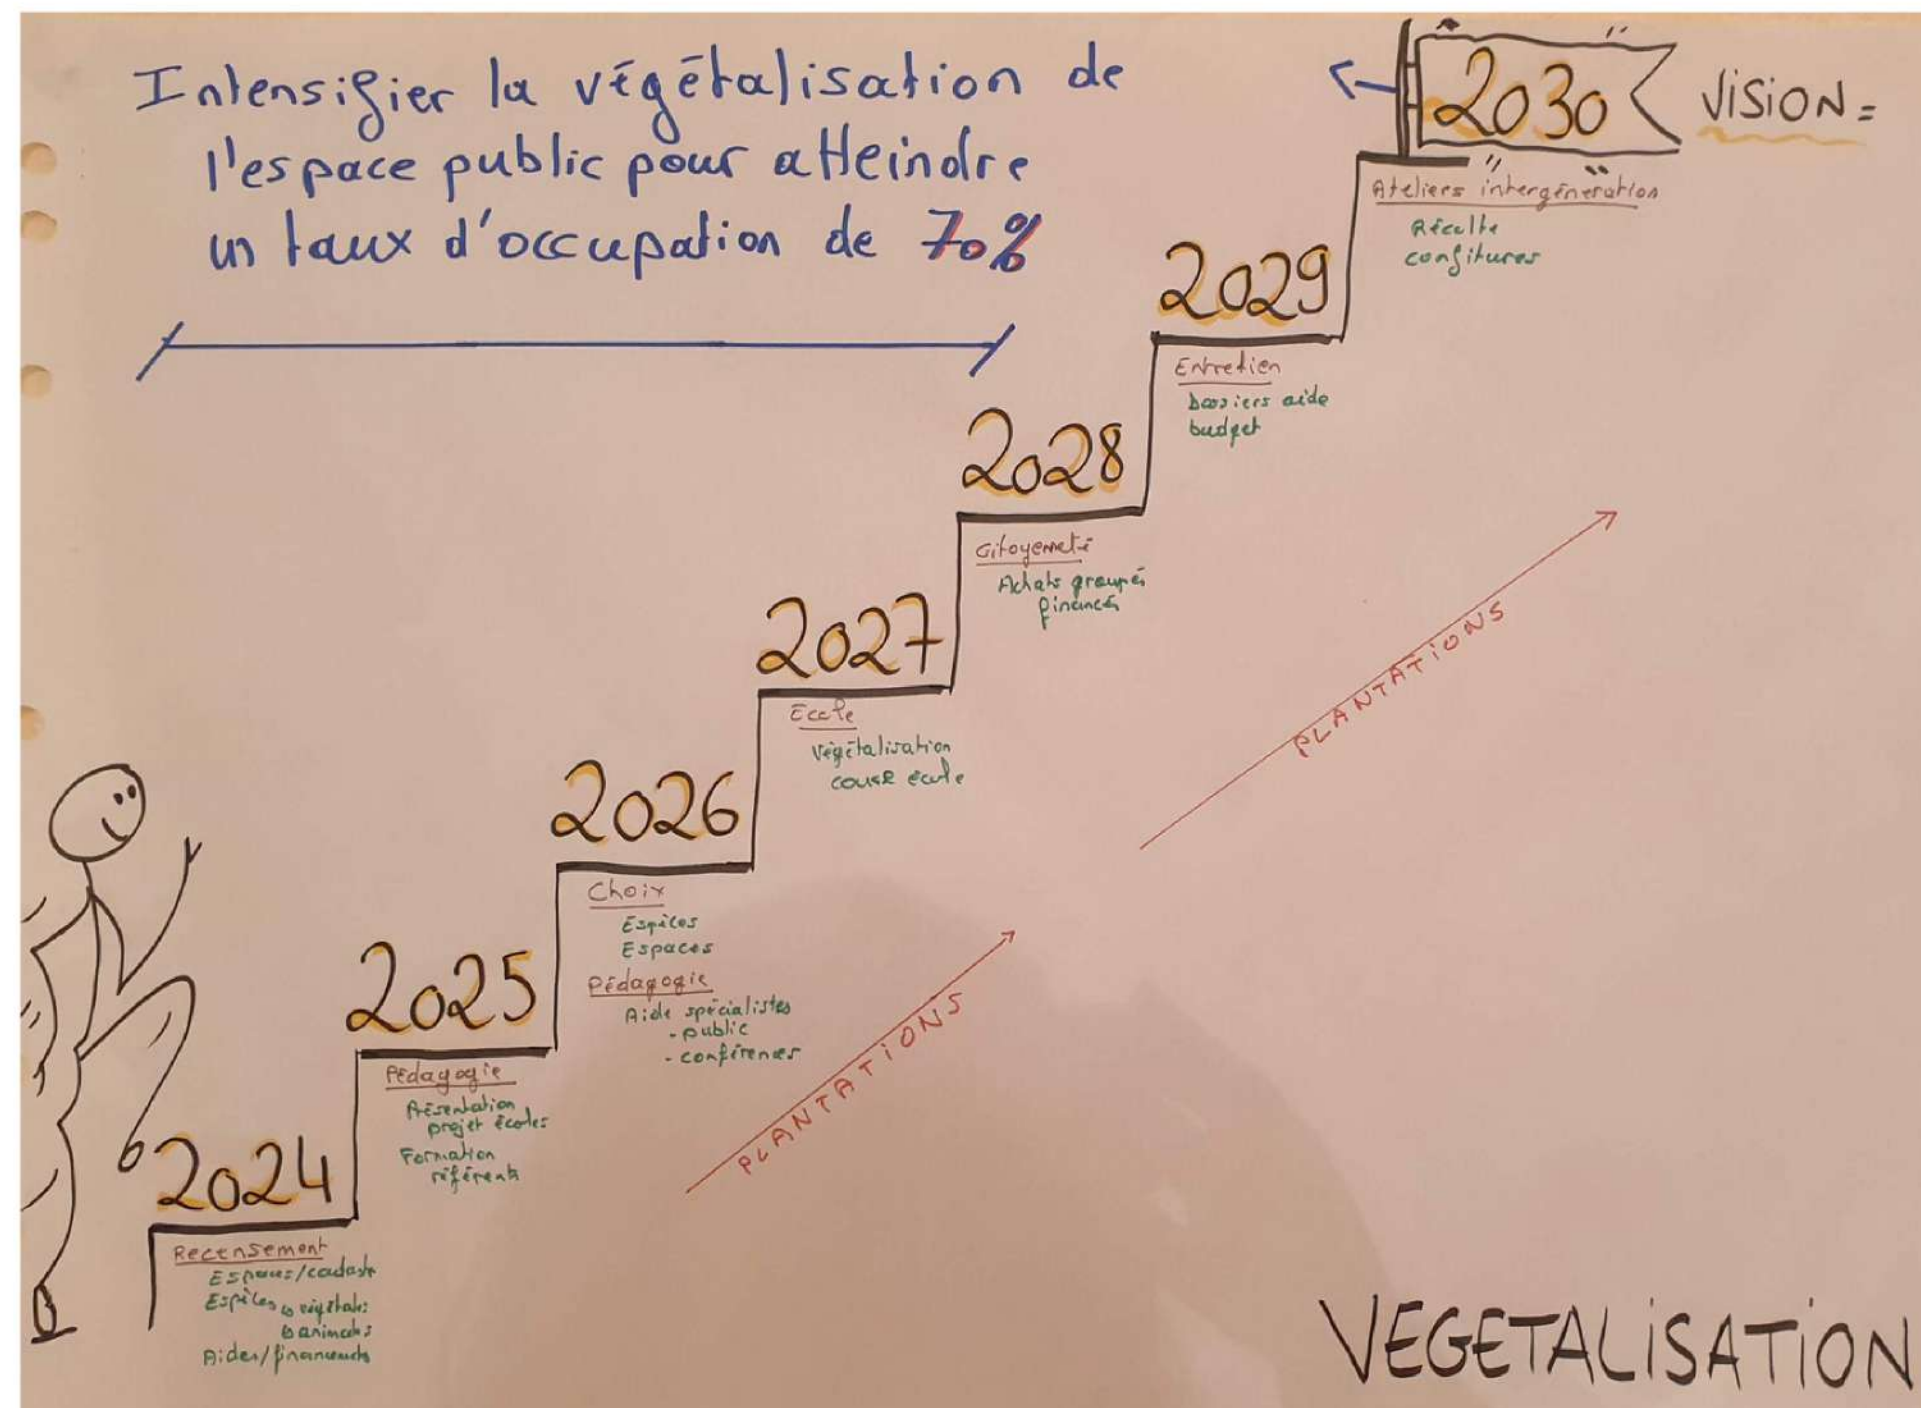 Intensifier la végétalisation de
l'espace public pour atteindre
un taux d'occupation de 70%
2030
VISION =
Ateliers intergénération
Récolte
confitures
2029
Entretien
Dossiers aide
budget
2028
Citoyenneté
Achats groupés
financés
2027
Ecole
Végétalisation
école
2026
Choix
Espèces
Espaces
Pédagogie
Aide spécialistes
- public
- conférences
2025
Pédagogie
Présentation
projet écoles
Formation
référents
2024
Recensement
Espaces/cadastre
Espèces végétales
animales
Aides/financements
PLANTATIONS
PLANTATIONS
VEGETALISATION